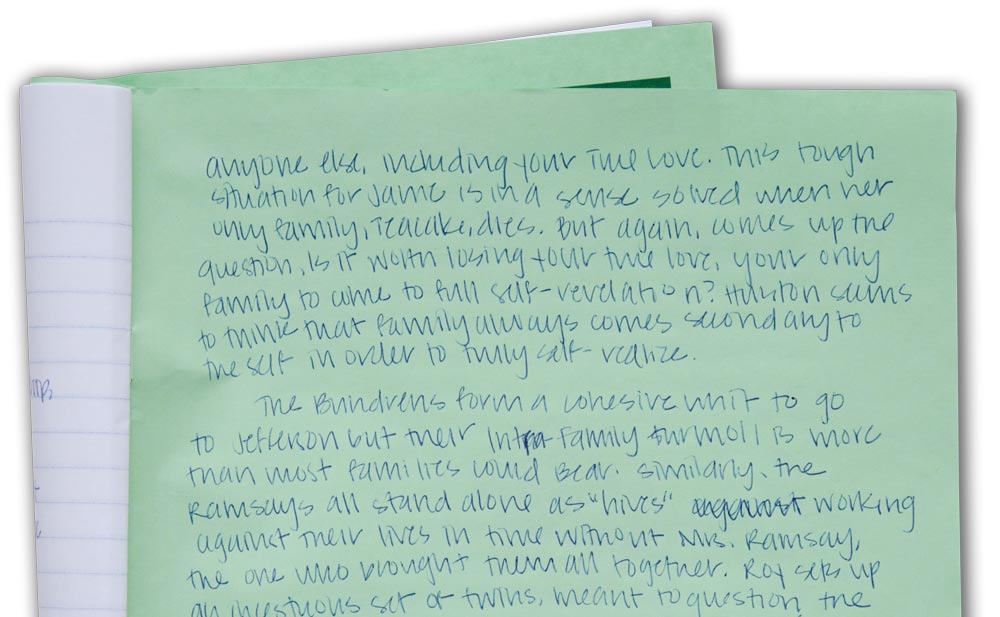 anyone else, including your true love. This tough
situation for Janie is in a sense solved when her
only family, Teacake, dies. But again, comes up the
question, is it worth losing your true love, your only
family to come to full self-revelation? Hurston seems
to think that family always comes secondary to
the self in order to fully self-realize.
The Bundrens form a cohesive unit to go
to Jefferson but their intra-family turmoil is more
than most families could bear. Similarly, the
Ramsays all stand alone as "hives" against working
against their lives in time without Mrs. Ramsay,
the one who brought them all together. Roy sets up
an incestuous set of twins, meant to question the